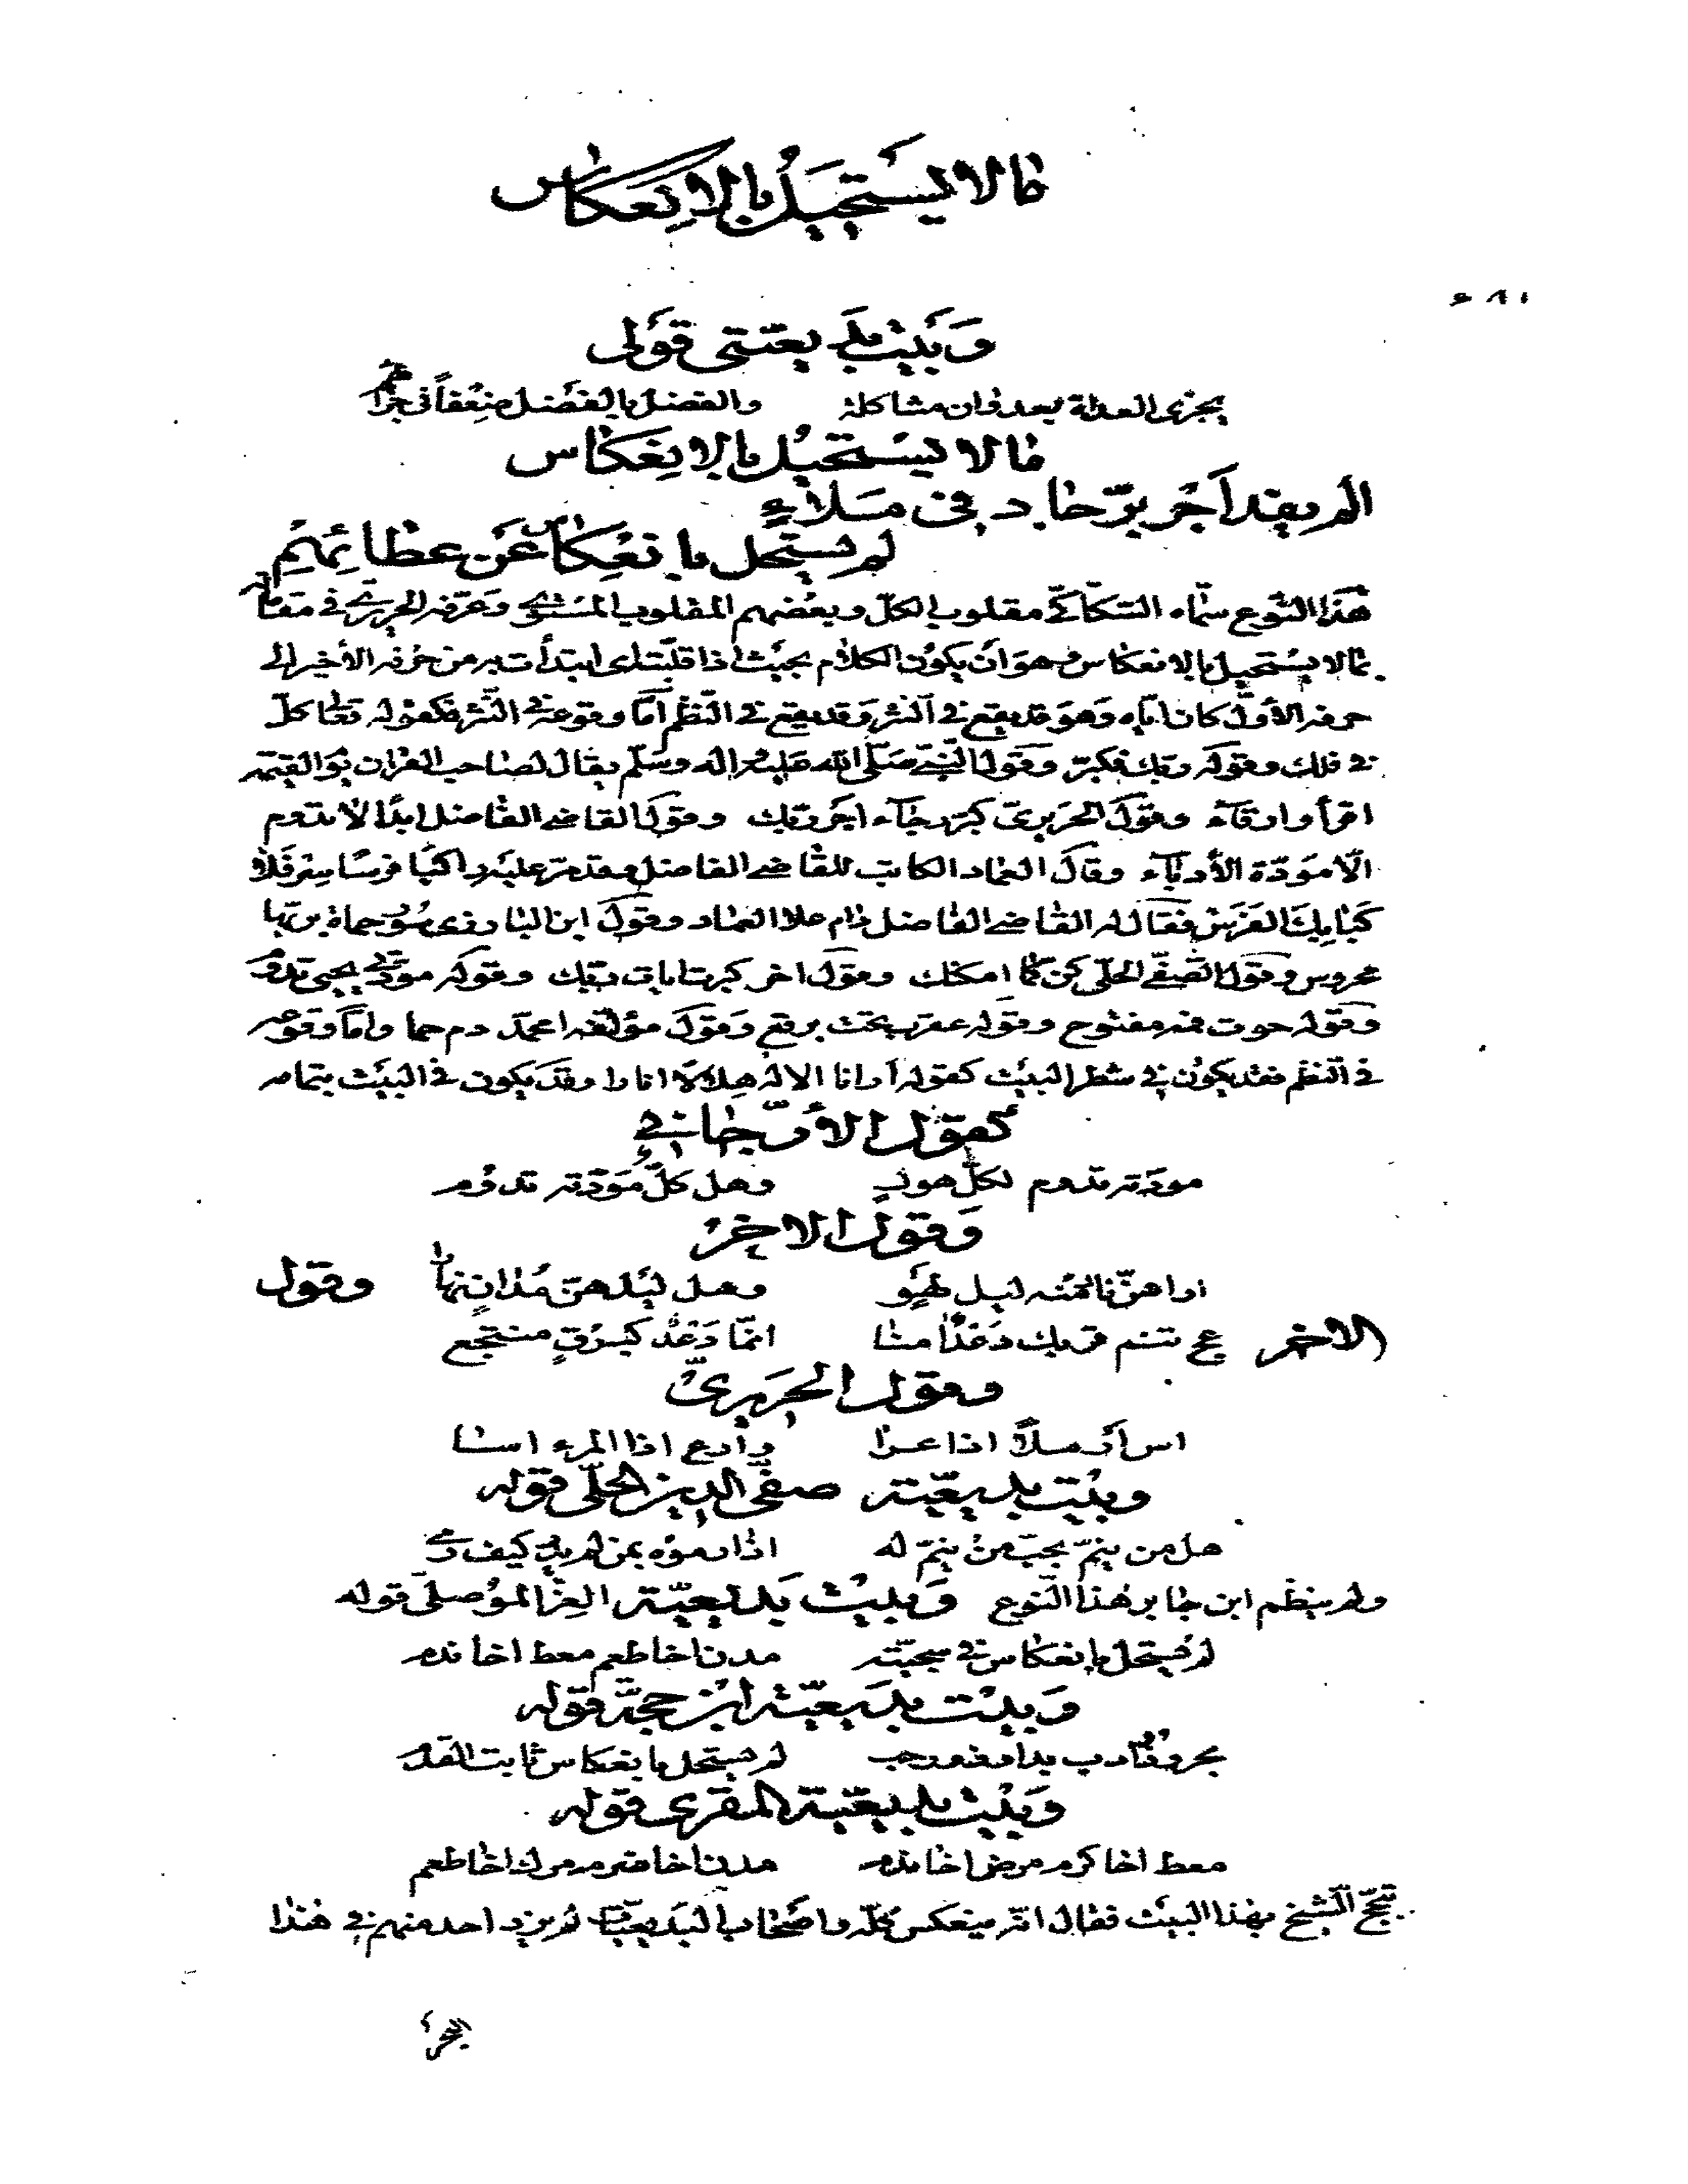 ما لا يستحيل بالانعكاس
وبيت بديعيتي قولي
يجزى العداة بعدوان مشاكلة والفضل بالفضل ضعفا في جزائهم
ما لا يستحيل بالانعكاس
الم يفد اجر بر جاد في ملاء
لم يستحل بانعكاس عن عطائهم
هذا النوع سماه السكاكي مقلوب الكل وبعضهم المقلوب المستوي وعرفه الحريري في مقاماته
بما لا يستحيل بالانعكاس وهو ان يكون الكلام بحيث اذا قلبته اي ابتدأت به من حرفه الأخير الى
حرفه الأول كان اياه وهو قد يقع في النثر وقد يقع في النظم اما وقوعه في النثر فكقوله تعالى كل
في فلك وقوله ربك فكبر وقول النبي صلى الله عليه واله وسلم يقال لصاحب القران يوم القيمة
اقرأ وارقاء وقول الحريري كبر رجاء اجر ربك وقول القاضي الفاضل ابدا لا تدوم
الا مودة الأدباء وقال العماد الكاتب للقاضي الفاضل وقد مر عليه راكبا فرسا سر فلا
كبا بك الفرس فقال له القاضي الفاضل دام علا العماد وقول ابن البارزي سور حماة بربها
محروس وقول الصفي الحلي كن كما امكنك وقول اخر كبرت ايات ربك وقوله مودتي يحيى تدوم
وقوله حوت فمه مفتوح وقوله عقرب تحت برقع وقول مؤلفه اعمد دم حما واما وقوعه
في النظم فقد يكون في شطر البيت كقوله ارانا الاله هلالا انارا وقد يكون في البيت بتمامه
كقول الأرجاني
مودته تدوم لكل هول وهل كل مودته تدوم
وقول الاخر
اراهن نادمنه ليل لهو وهل ليلهن مدان نهارا وقول
الاخر عج تنم قربك دعد امنا انما دعد كبرق منتجع
وقول الحريري
اس ارملا اذا عرا وارع اذا المرء اسا
وبيت بديعية صفي الدين الحلي قوله
هل من ينم بحب من ينم له اذا رموه بمن لم يدر كيف رمي
ولم ينظم ابن جابر هذا النوع وبيت بديعية العز الموصلي قوله
لم يستحل بانعكاس في سجيته مدن اخا طعم معط اخا ندم
وبيت بديعية ابن حجة قوله
بحر وذو ادب بدا وذو رحب لم يستحل بانعكاس ثابت القدم
وبيت بديعية المقري قوله
معط اخا كرم مرض اخا ندم مدن اخا ضرم مرك اخا طعم
تبجح الشيخ بهذا البيت فقال انه ينعكس كله واصحاب البديعيات لم يزد احد منهم في هذا